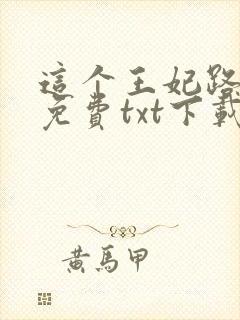 這个王妃路
免費txt下載
黄馬甲